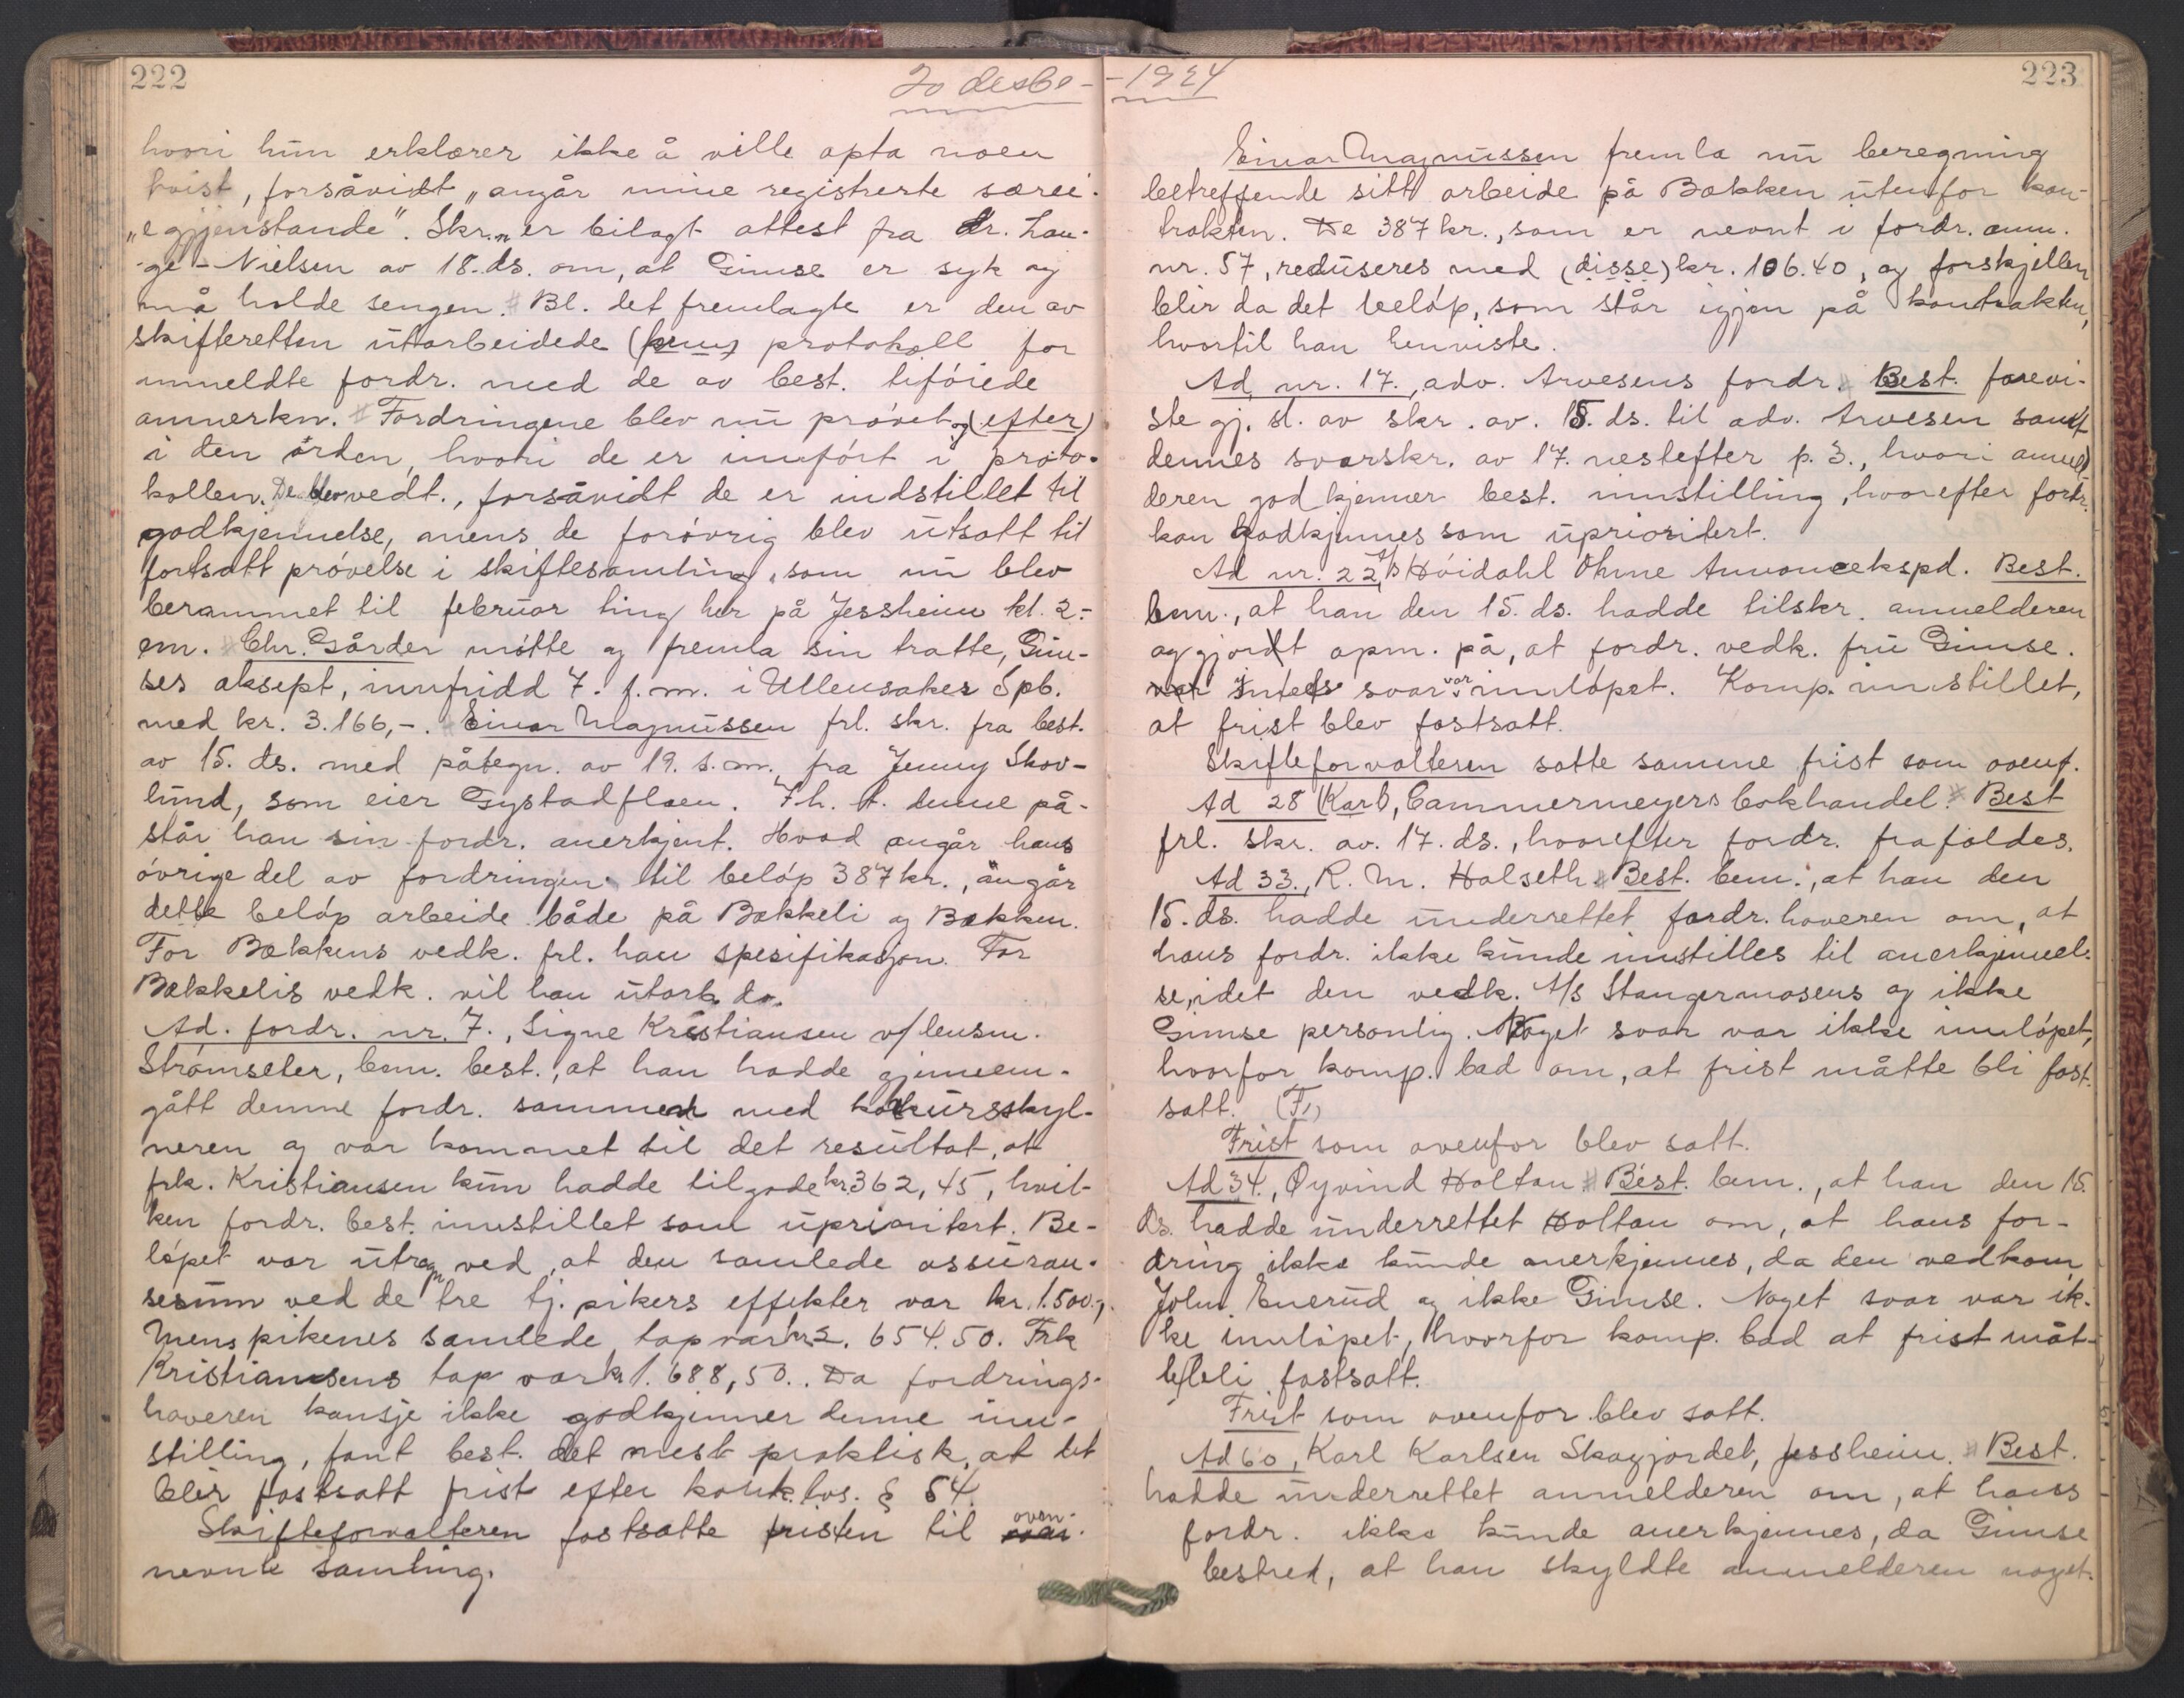 222
20 desbr - 
hvori hun erklærer ikke å ville opta noen
tvist, forsåvidt „angår mine registrerte særei-
„egjenstande". Skr.n er bilagt attest fra dr. Lan-
ge-Nielsen av 18. ds. om, at Gimse er syk og
må holde sengen. # Bl. det fremlagte er den av
skifteretten utarbeidede protokoll for
anmeldte fordr. med de av best. tiføiede
anmerkn. # Fordringene blev nu prøvet og (efter)
i den orden, hvori de er innført i proto-
kollen. De blev vedt., forsåvidt de er indstillet til
godkjennelse, mens de forøvrig blev utsatt til
fortsatt prøvelse i skiftesamling, som nu blev
berammet til februar ting her på Jessheim kl. 2-
em. # Chr. Gårder møtte og fremla sin tratte, Gim-
ses aksept, innfridd 7. f. m. i Ullensaker Spb.
med kr. 3.166,-. # Einar Magnussen frl. skr. fra best.
av 15. ds. med påtegn. av 19. s. m. fra Jenny Skov-
lund, som eier Gystadflaen. I h. t. denne på-
står han sin fordr. anerkjent. Hvad angår hans
øvrige del av fordringen til beløp 387 kr., angår
dette beløp arbeide både på Bakkeli og Bakken.
For Bakkens vedk. frl. han spesifikasjon. For
Bakkelis vedk. vil han utarb. do.
Ad. fordr. nr. 7., Signe Kristiansen v/ lensm.
Strømseter, bem. best., at han hadde gjennem-
gått denne fordr. sammen med konkursskyl-
neren og var kommet til det resultat, at
frk. Kristiansen kun hadde tilgode kr. 362,45, hvil-
ken fordr. best. innstillet som uprioritert. Be-
løpet var utregn ved, at den samlede assuran-
sesum ved de tre tj. pikers effekter var kr. 1.500,-,
mens pikenes samlede tap var kr. 2.654.50. Frk
Kristiansens tap var kr. 1.688,50. Da fordrings-
haveren kansje ikke godkjenner denne inn-
stilling, fant best. det mest praktisk, at det
blir fastsatt frist efter konk. lov. § 54.
Skifteforvalteren fastsatte fristen til oven-
nevnte samling.
- 1924
223
Einar Magnussen fremla nu beregning
betreffende sitt arbeide på Bakken utenfor kon-
trakten. De 387 kr., som er nevnt i fordr. anm.
nr. 57, reduseres med (disse) kr. 106.40, og forskjellen
blir da det beløp, som står igjen på kontrakten,
hvortil han henviste.
Ad nr. 17., adv. Arvesens fordr. # Best. forevi-
ste gj. sl. av skr. av. 15. ds. til adv. Arvesen samt
dennes svarskr. av 17. næstefter p. 3., hvori anmel-
deren godkjenner best. innstilling, hvorefter fordr.
kan godkjennes som uprioritert.
Ad nr. 22, A/S Høidahl Ohme Annoncekspd. Best.
bem., at han den 15. ds. hadde tilskr. anmelderen
og gjordt opm. på, at fordr. vedk. fru Gimse.
Intets svar var innløpet. Komp. innstillet,
at frist blev fastsatt.
Skifteforvalteren satte samme frist som ovenf.
Ad 28 Karl, Cammermeyers bokhandel. # Best
frl. skr. av. 17. ds., hvorefter fordr. frafaldes.
Ad 33., R. M. Halseth # Best. bem., at han den
15. ds. hadde underrettet fordr. haveren om, at
hans fordr. ikke kunde innstilles til anerkjennel-
se, idet den vedk. A/S Stangermosens og ikke
Gimse personlig. Noget svar var ikke innløpet,
hvorfor komp. bad om, at frist måtte bli fast-
satt. (F.,)
Frist som ovenfor blev satt.
Ad 34., Øyvind Holtan # Best. bem., at han den 15.
ds. hadde underrettet Holtan om, at hans for-
dring ikke kunde anerkjennes, da den vedkom
John Enerud og ikke Gimse. Noget svar var ik-
ke innløpet, hvorfor komp. bad at frist måt-
te bli fastsatt.
Frist som ovenfor blev satt.
Ad 60, Karl Karlsen Skogjordet, Jessheim. # Best.
hadde underrettet anmelderen om, at hans
fordr. ikke kunde anerkjennes, da Gimse
bestred, at han skyldte anmelderen noget.